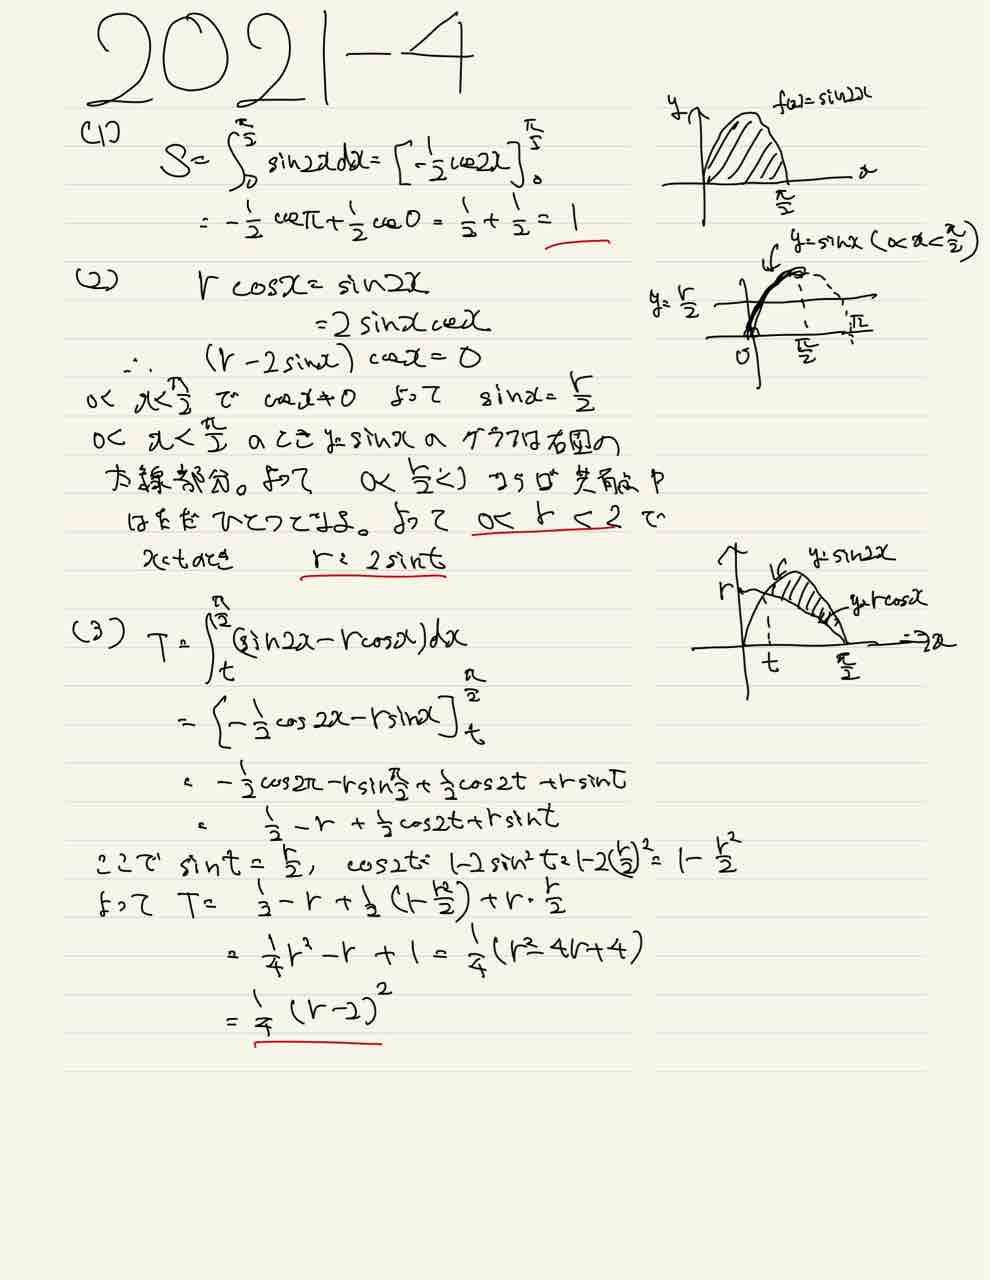 2021-4
(1)
S = ∫_0^{π/2} sin2xdx = [-1/2 cos2x]_0^{π/2}
= -1/2 cosπ + 1/2 cos0 = 1/2 + 1/2 = 1
y
f(x)=sin2x
x
π/2
(2) r cosx = sin2x
= 2 sinx cosx
∴ (r-2sinx) cosx = 0
0<x<π/2 で cosx≠0 よって sinx = r/2
0<x<π/2 のとき y=sinx のグラフは右図の
太線部分。よって 0<r/2<1 ならば 共有点P
はただひとつである。よって 0<r<2 で
x=tのとき r=2sint
y=sinx (0<x<π/2)
y=r/2
0
π/2
π
(3) T = ∫_t^{π/2} (sin2x-rcosx)dx
= [-1/2 cos2x-rsinx]_t^{π/2}
= -1/2 cos2π-rsinπ/2+1/2 cos2t+rsint
= 1/2-r+1/2 cos2t+rsint
ここで sint=r/2, cos2t=1-2sin²t=1-2(r/2)²=1-r²/2
よって T= 1/2-r+1/2(1-r²/2)+r・r/2
= 1/4r²-r+1=1/4(r²-4r+4)
= 1/4(r-2)²
y=sin2x
r
y=rcosx
x
t
π/2